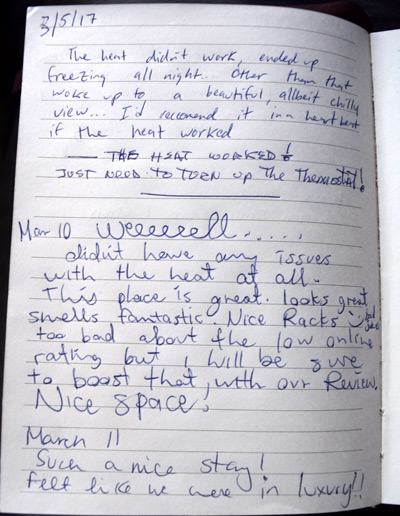 3/5/17
The heat didn't work, ended up
freezing all night. Other than that
woke up to a beautiful, allbeit chilly
view... I'd recomend it in a heart beat
if the heat worked
— THE HEAT WORKED!
JUST NEED TO TURN UP The Thermostat!
Mar 10 Weeeeell.....
didn't have any issues
with the heat at all.
This place is great. looks great,
smells fantastic. Nice Racks
too bad about the low online
rating but i will be sure
to boost that, with our Review.
Nice space!
March 11
Such a nice stay!
Felt like we were in luxury!!